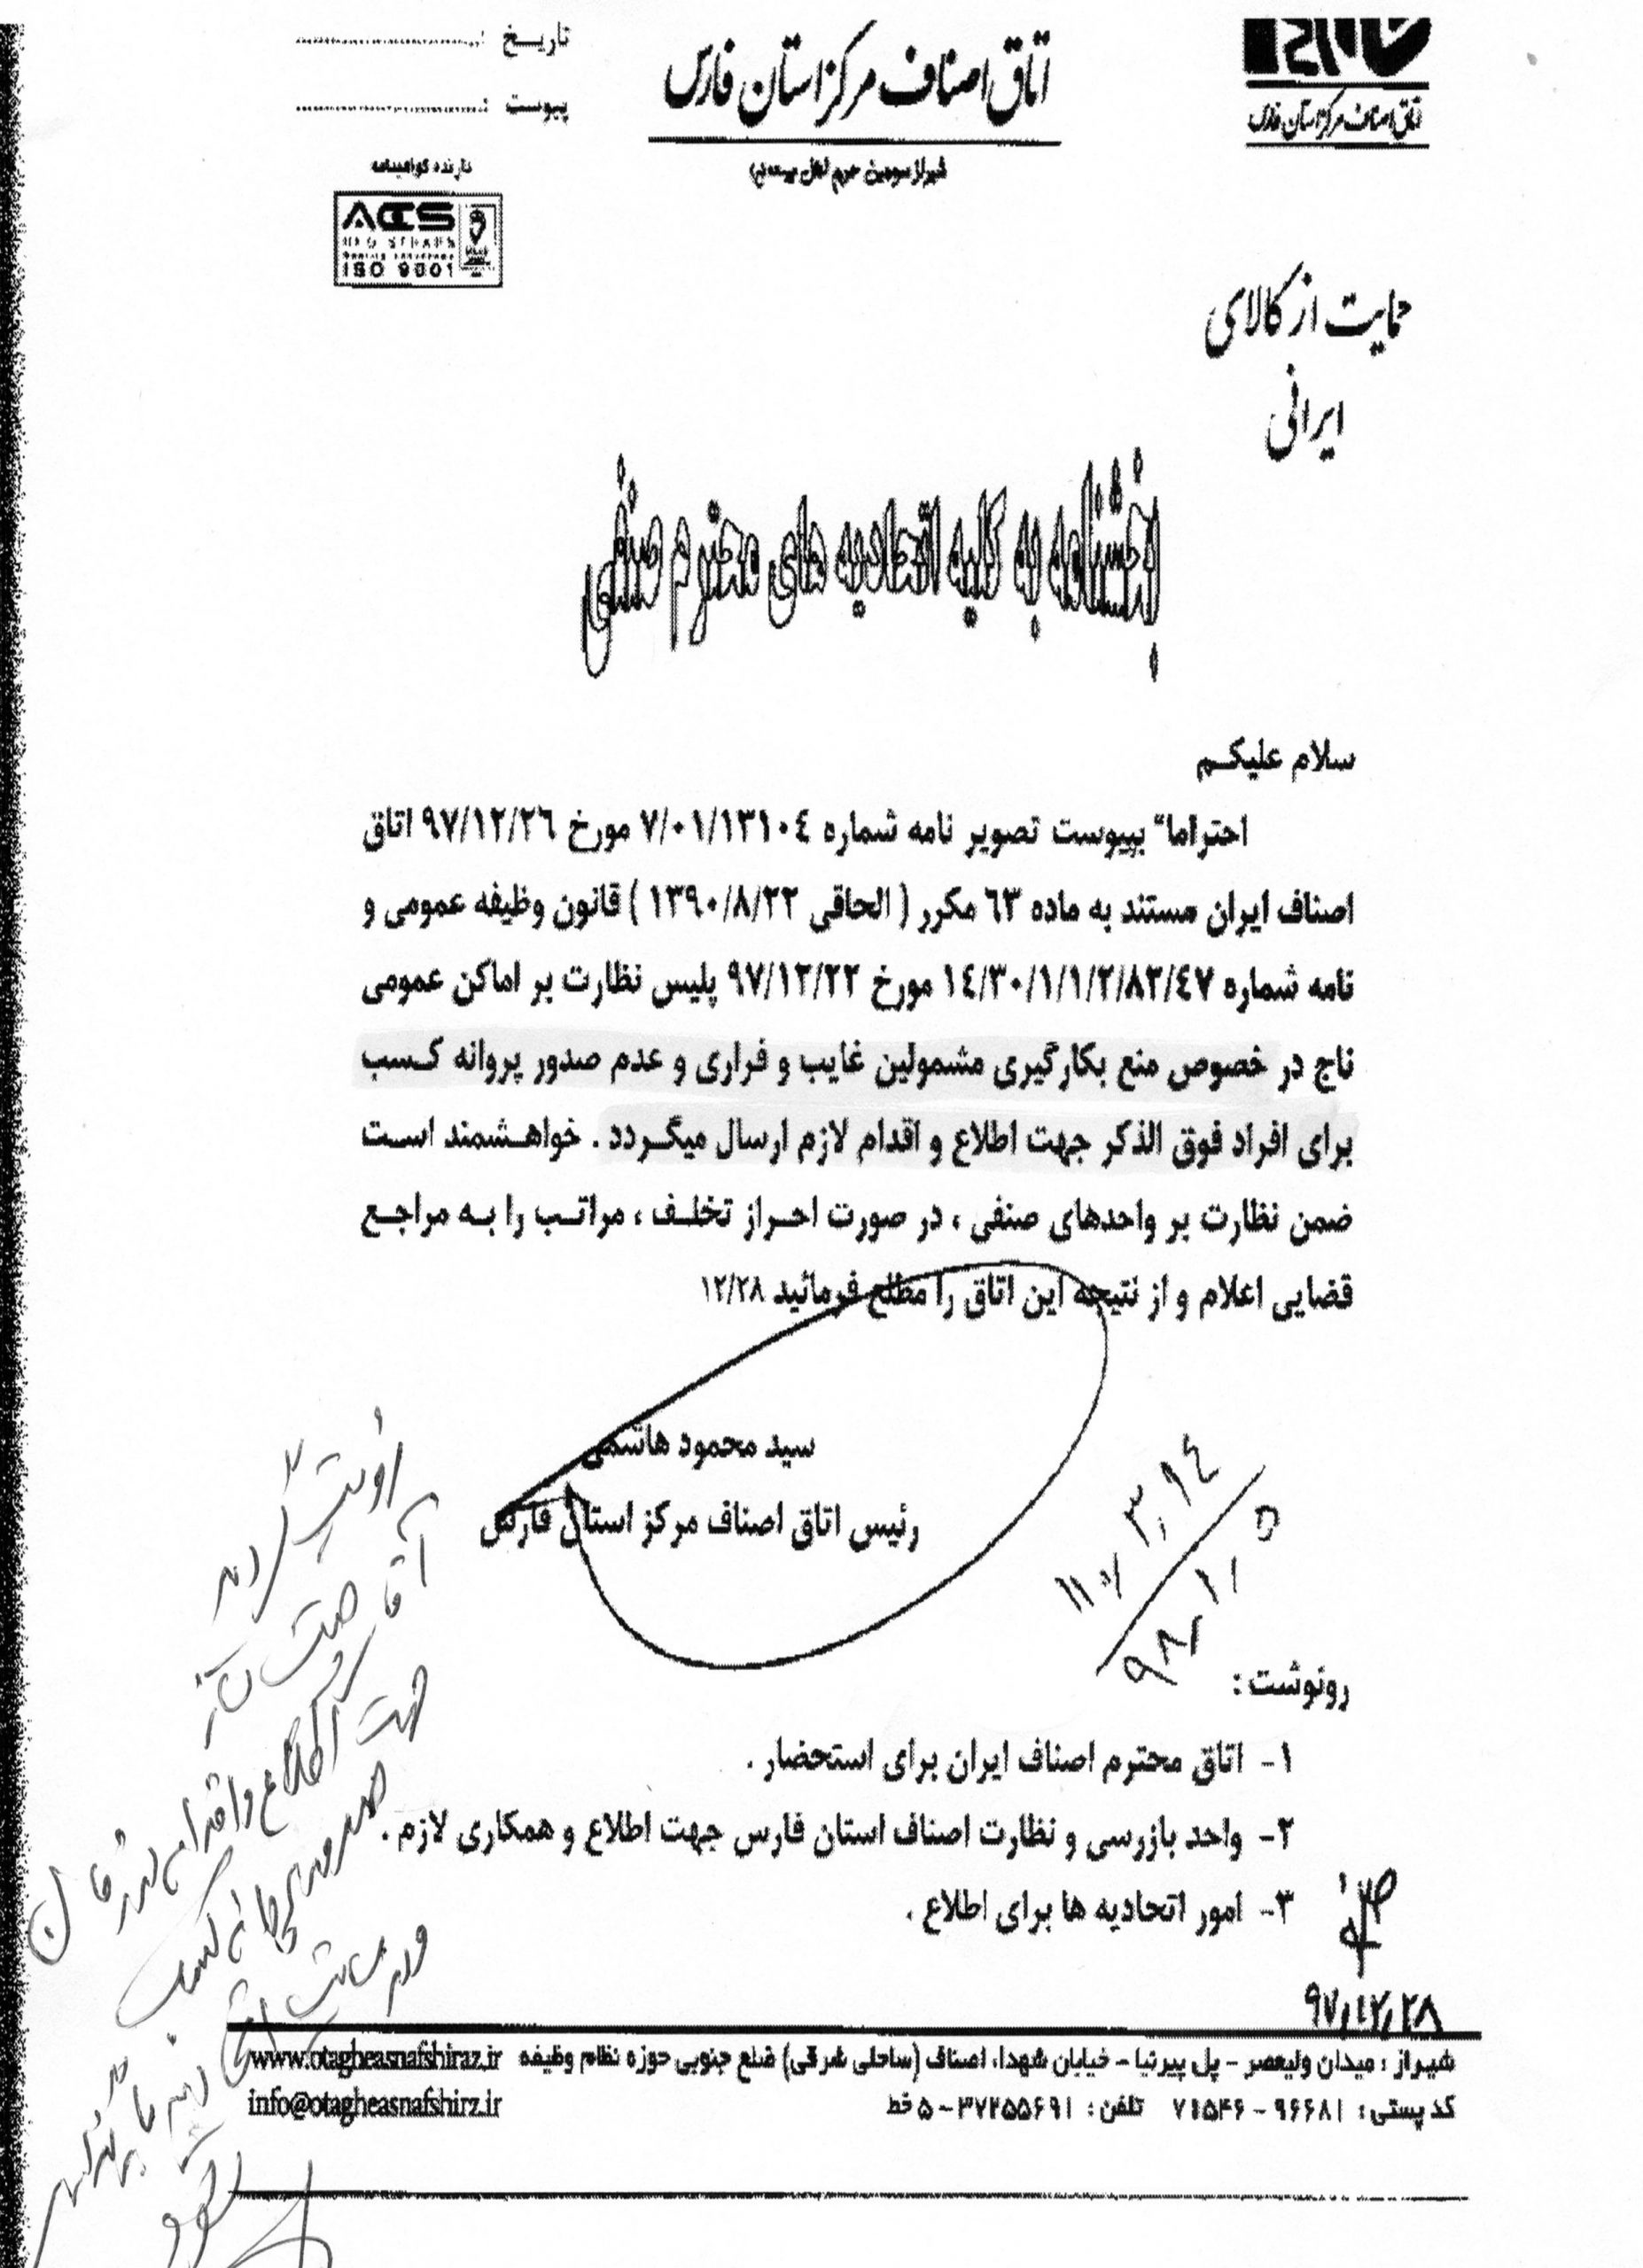 تاریخ :
پیوست :
اتاق اصناف مرکز استان فارس
شیراز سومین حرم اهل بیت
اتاق اصناف مرکز استان فارس
دارنده گواهینامه
ACS
ISO 9001
حمایت از کالای
ایرانی
بخشنامه به کلیه اتحادیه های محترم صنفی
سلام علیکم
احتراما" بپیوست تصویر نامه شماره ۷/۰۱/۱۳۱۰٤ مورخ ۹۷/۱۲/۲٦ اتاق
اصناف ایران مستند به ماده ٦۳ مکرر ( الحاقی ۱۳۹۰/۸/۲۲ ) قانون وظیفه عمومی و
نامه شماره ۱٤/۳۰/۱/۱/۲/۸۲/٤۷ مورخ ۹۷/۱۲/۲۲ پلیس نظارت بر اماکن عمومی
ناج در خصوص منع بکارگیری مشمولین غایب و فراری و عدم صدور پروانه کسب
برای افراد فوق الذکر جهت اطلاع و اقدام لازم ارسال میگردد . خواهشمند است
ضمن نظارت بر واحدهای صنفی ، در صورت احراز تخلف ، مراتب را به مراجع
قضایی اعلام و از نتیجه این اتاق را مطلع فرمائید ۱۲/۲۸
سید محمود هاشمی
رئیس اتاق اصناف مرکز استان فارس
۹۸/۱/۵
رونوشت :
۱- اتاق محترم اصناف ایران برای استحضار .
۲- واحد بازرسی و نظارت اصناف استان فارس جهت اطلاع و همکاری لازم .
۳- امور اتحادیه ها برای اطلاع .
۹۷/۱۲/۲۸
رویت گردید
جهت اطلاع و اقدام
شیراز : میدان ولیعصر - پل پیرنیا - خیابان شهدا، اصناف (ساحلی شرقی) ضلع جنوبی حوزه نظام وظیفه www.otagheasnafshiraz.ir
کد پستی : ۹۶۶۸۱ - ۷۱۵۴۶ تلفن : ۳۷۲۵۵۶۹۱ - ۵ خط info@otagheasnafshirz.ir